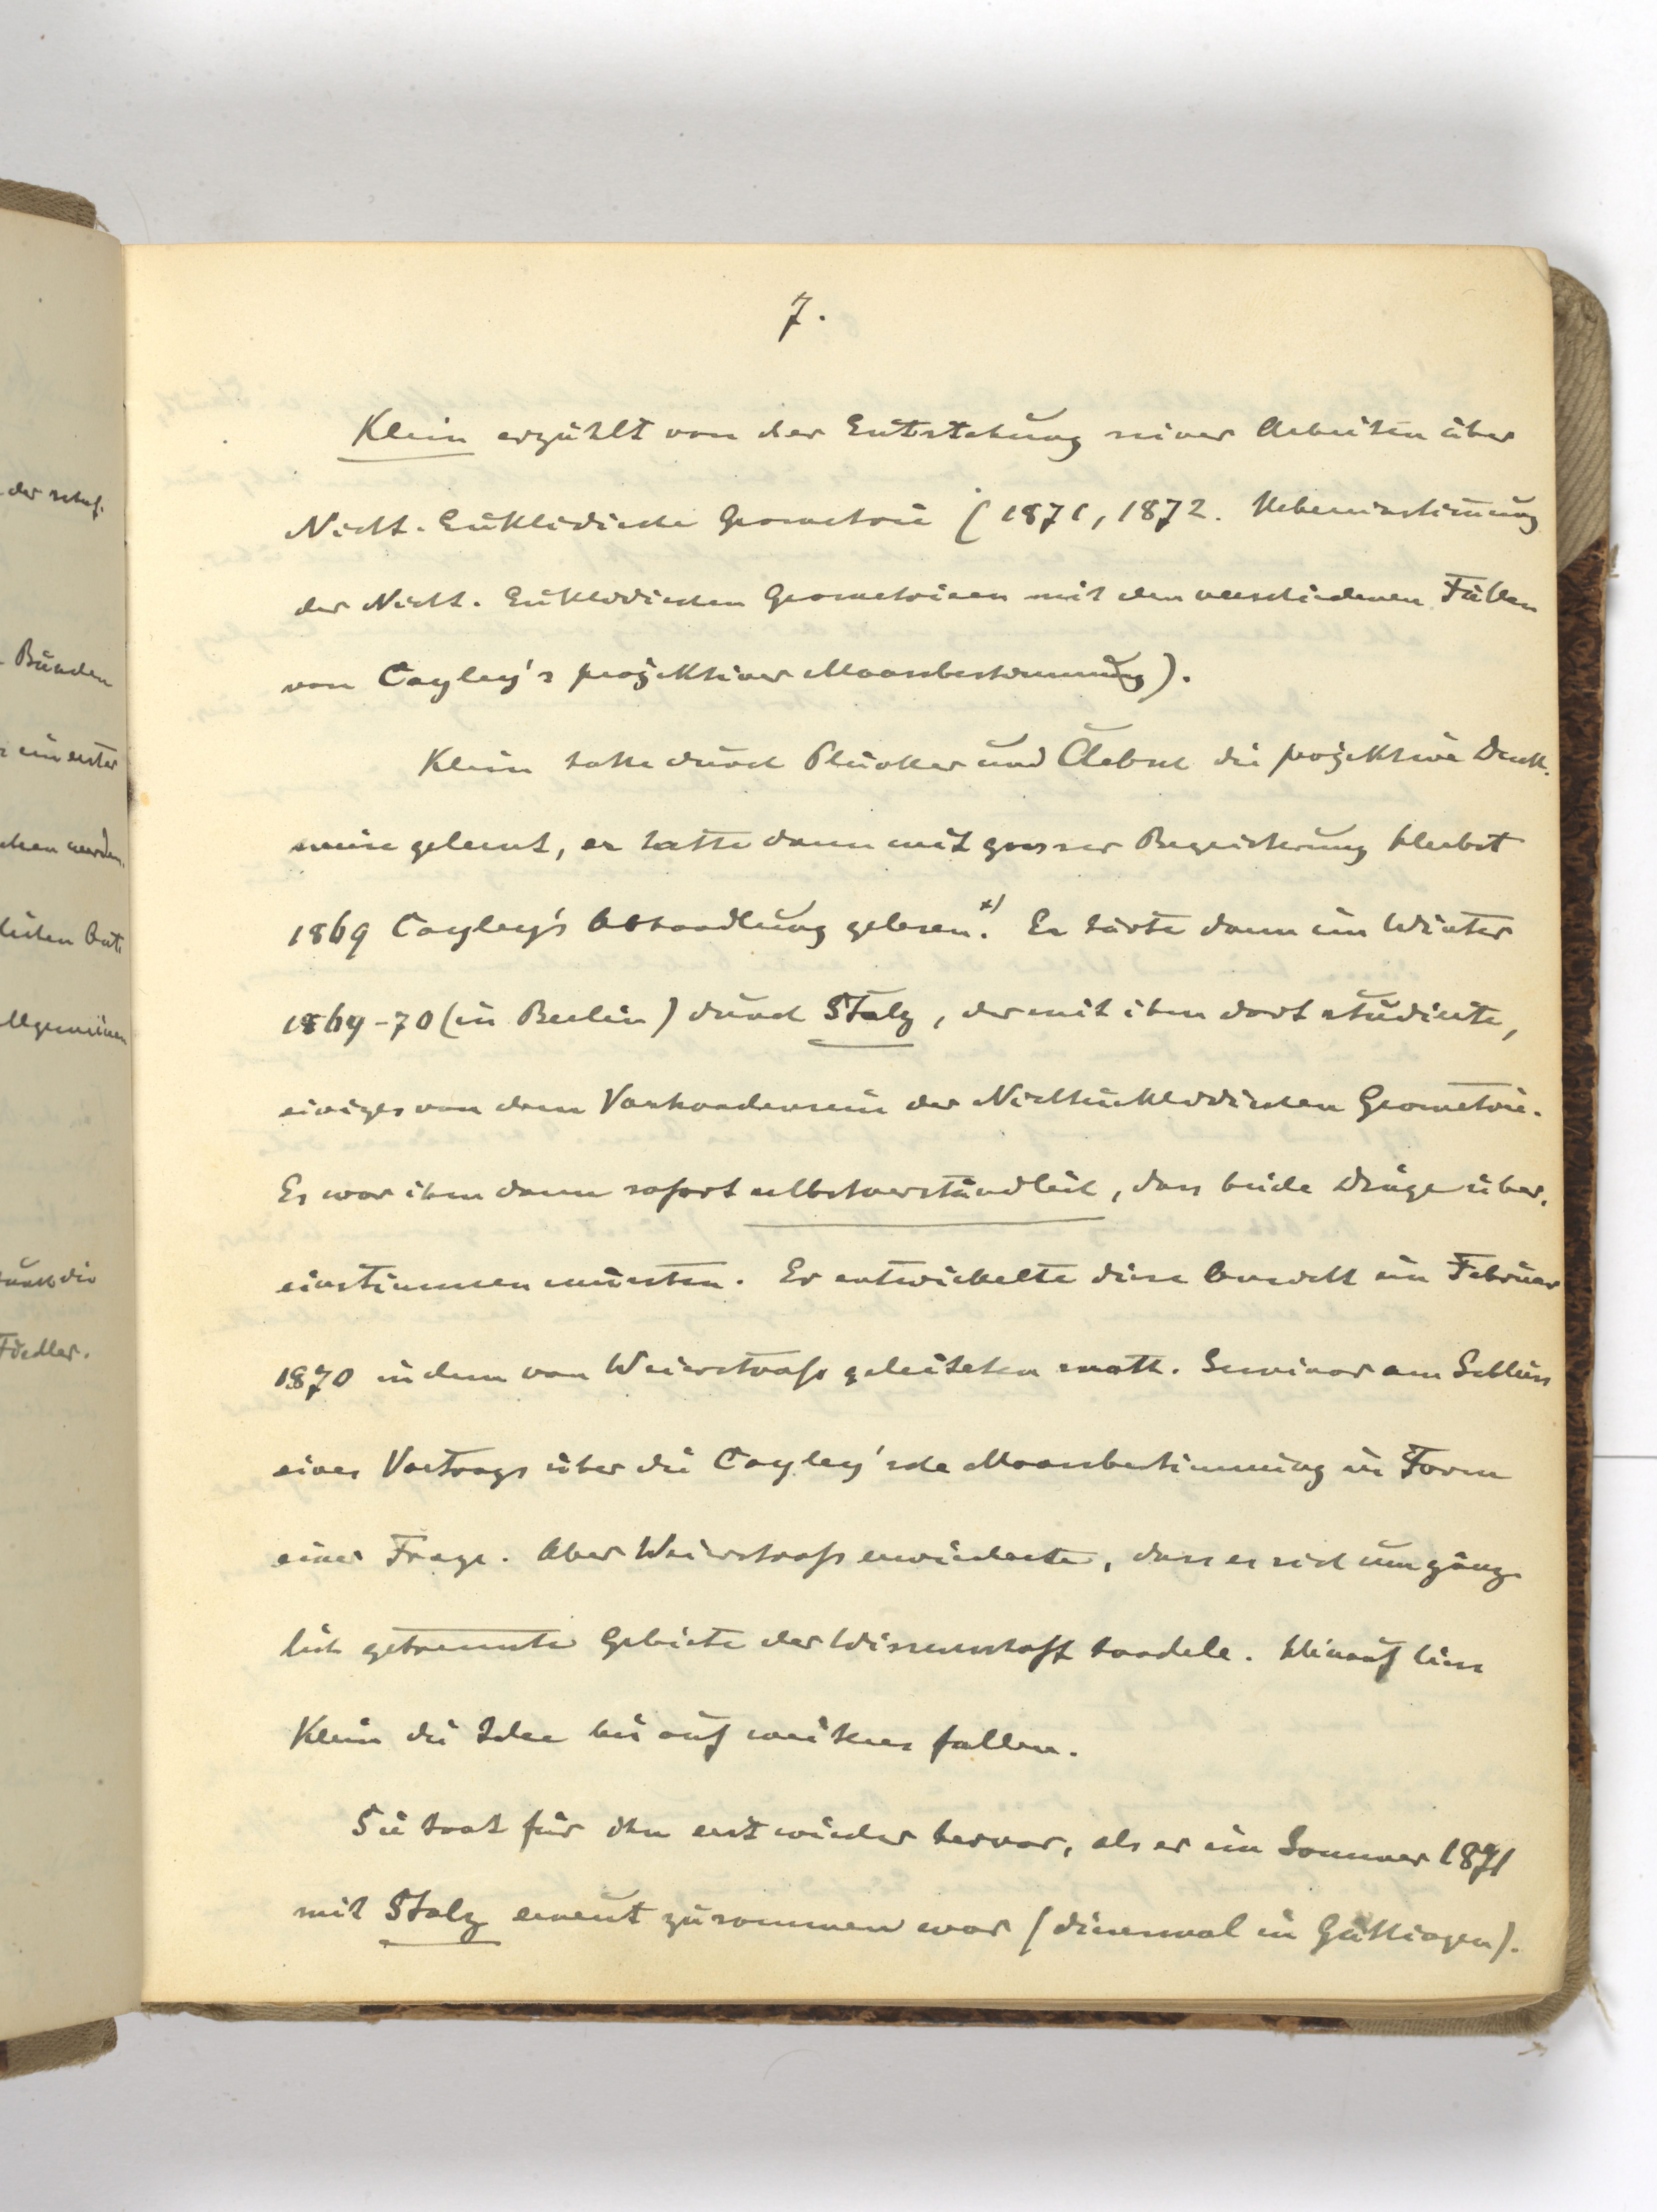 7.
Klein erzählt von der Entstehung seiner Arbeiten über
Nicht-Euklidische Geometrie (1871, 1872. Uebereinstimmung
der Nicht-Euklidischen Geometrieen mit den verschiedenen Fällen
von Cayley's projektiver Maassbestimmung).
Klein hatte durch Plücker und Clebsch die projektive Denk-
weise gelernt, er hatte dann mit grosser Begeisterung Herbst
1869 Cayley's Abhandlung gelesen.*) Er hörte dann im Winter
1869-70 (in Berlin) durch Stolz, der mit ihm dort studierte,
einiges von dem Vorhandensein der Nichteuklidischen Geometrie.
Es war ihm dann sofort selbstverständlich, dass beide Dinge über-
einstimmen müssten. Er entwickelte diese Ansicht im Februar
1870 in dem von Weierstraß geleiteten math. Seminar am Schluss
eines Vortrags über die Cayley'sche Maassbestimmung in Form
einer Frage. Aber Weierstraß erwiderte, dass es sich um gänz-
lich getrennte Gebiete der Wissenschaft handele. Hierauf liess
Klein die Idee bis auf weiteres fallen.
Sie trat für ihn erst wieder hervor, als er im Sommer 1871
mit Stolz erneut zusammen war (diesmal in Göttingen).
der
Bünden
ein erster
werden.
lichen
llgemeinen
durch die
Fiedler.